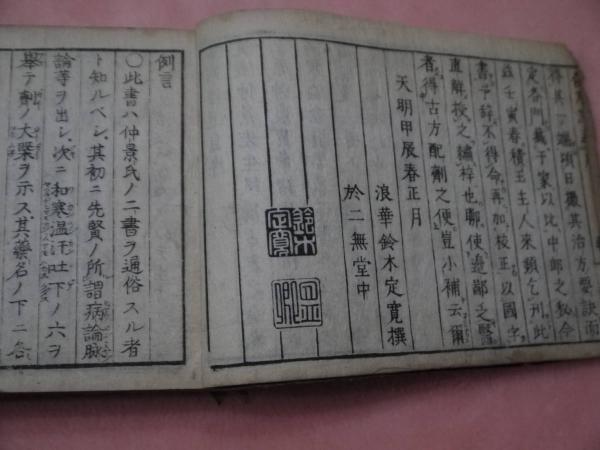 得其一 項日徴其治方要訣而
定各門蔵于家以比中郎之秘今
玆壬寅春積玉主人來頻乞刊此
書予辞不得命再加校正以國字
直解授之繡梓也鄹使邉鄙之醫
者得古方配劑之便豈小補云爾
天明甲辰春正月
浪華鈴木定寛撰
於二無堂中
鈴木
定寛
例言
〇此書ハ仲景氏ノ二書ヲ通俗スル者
ト知ルベシ其初ニ先賢ノ所謂病論脉
論等ヲ出シ次ニ和寒温汗吐下ノ六ヲ
擧テ劑ノ大槩ヲ示ス其藥名ノ下ニ合